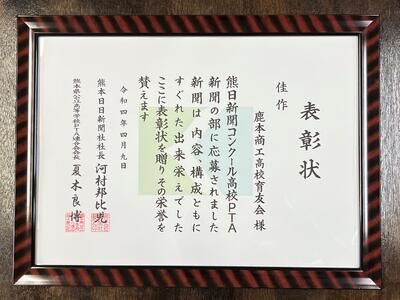 表彰状
佳作
鹿本商工高校育友会 様
熊日新聞コンクール高校PTA
新聞の部に応募されました
新聞は 内容、構成ともに
すぐれた出来栄えでした
ここに表彰状を贈り その栄誉を
讃えます
令和四年四月九日
熊本日日新聞社社長 河村邦比児
熊本県公立高等学校PTA連合会会長 夏木良博